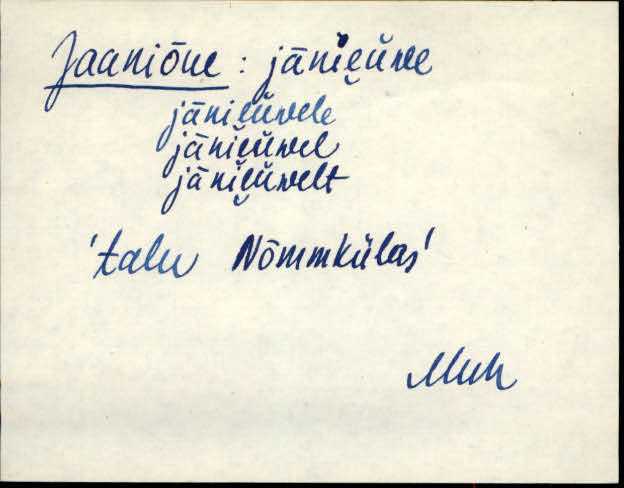 Jaaniõue : jāniẹüwe
jāniẹüwele
jāniẹüwel
jāniẹüwelt
'talu Nõmmkülas'
Muh